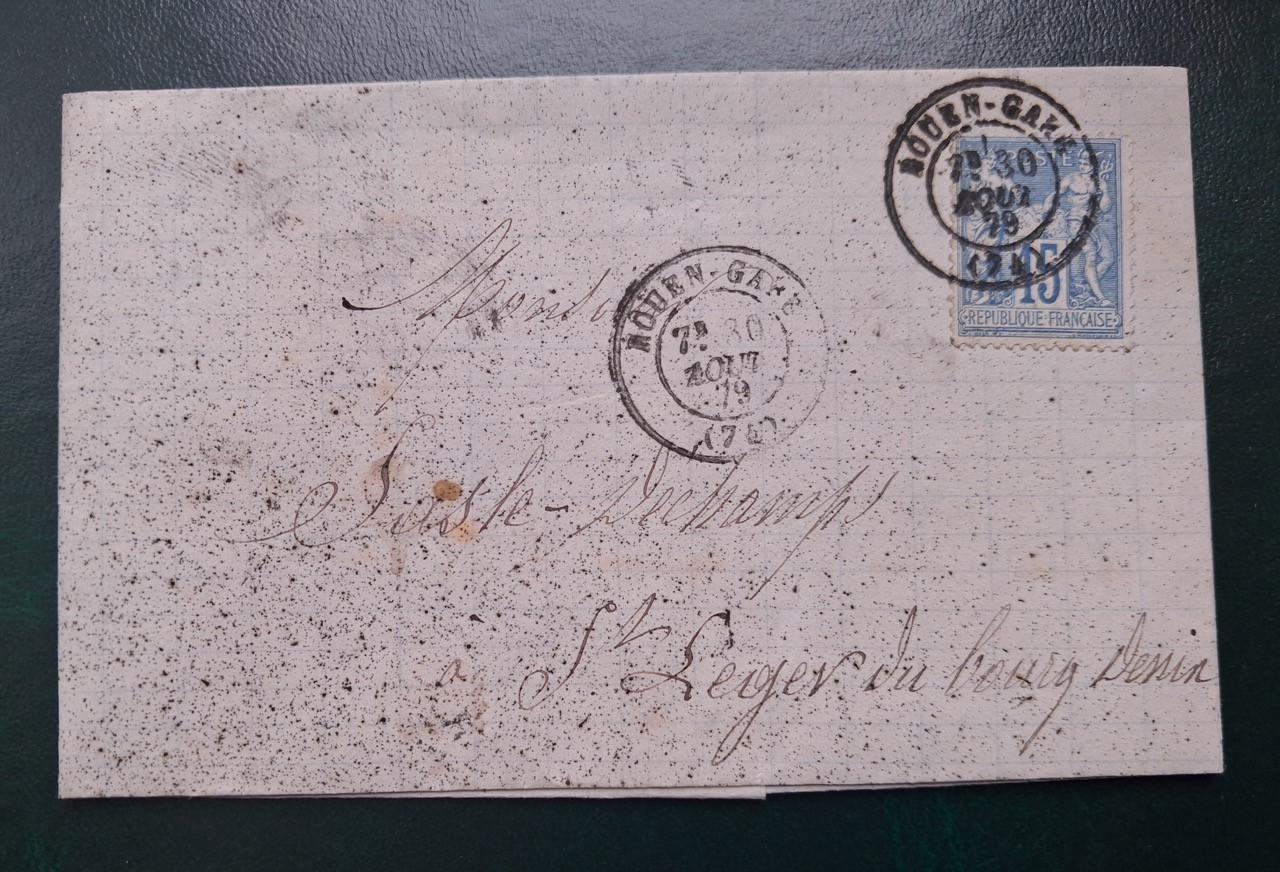 ROUEN-GARE
7E 30
AOUT
79
(74)
POSTE
15
REPUBLIQUE FRANÇAISE
Monsieur
ROUEN-GARE
7E 30
AOUT
79
(74)
Duchamps
à St Leger du bourg Denin